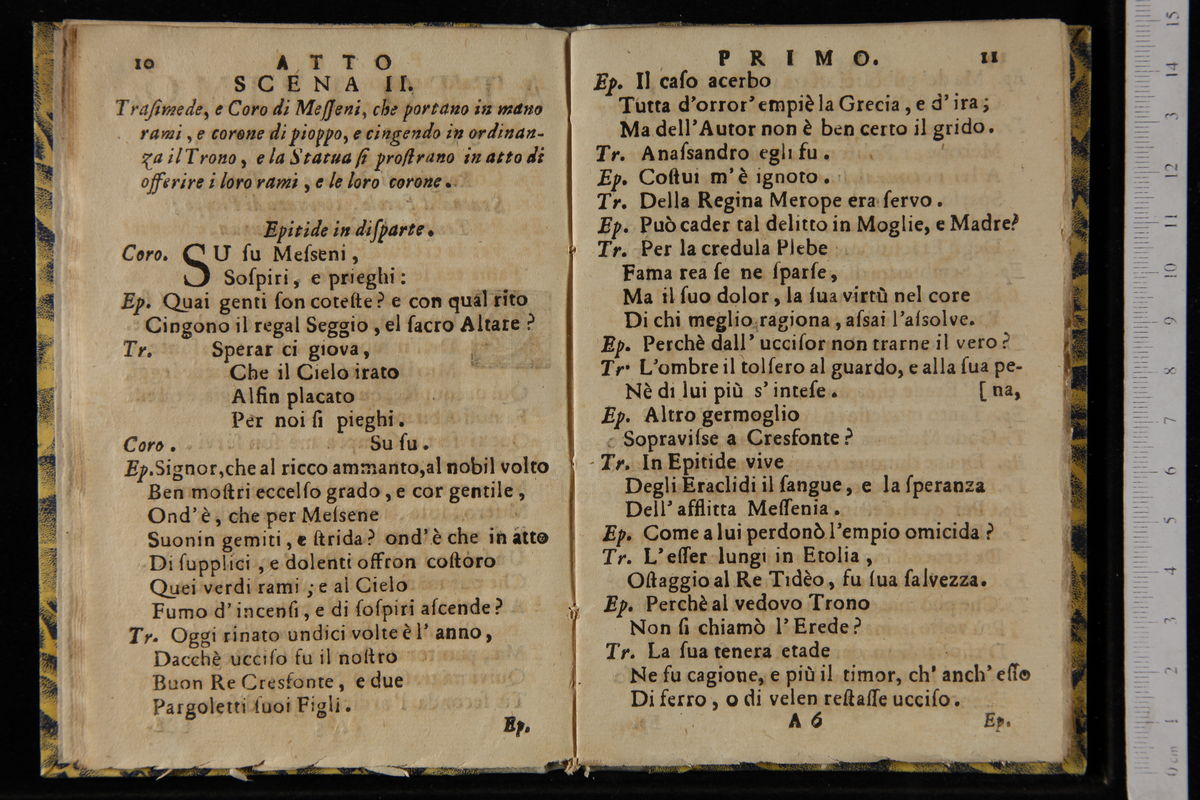 10 ATTO
SCENA II.
Traſimede, e Coro di Meſſeni, che portano in mano
rami, e corone di pioppo, e cingendo in ordinan-
za il Trono, e la Statua ſi proſtrano in atto di
offerire i loro rami, e le loro corone.
Epitide in diſparte.
Coro. SU ſu Meſseni,
Soſpiri, e prieghi:
Ep. Quai genti ſon coteſte? e con qual rito
Cingono il regal Seggio, el ſacro Altare?
Tr. Sperar ci giova,
Che il Cielo irato
Alfin placato
Per noi ſi pieghi.
Coro. Su ſu.
Ep. Signor, che al ricco ammanto, al nobil volto
Ben moſtri eccelſo grado, e cor gentile,
Ond'è, che per Meſsene
Suonin gemiti, e ſtrida? ond'è che in atto
Di ſupplici, e dolenti offron coſtoro
Quei verdi rami; e al Cielo
Fumo d'incenſi, e di ſoſpiri aſcende?
Tr. Oggi rinato undici volte è l'anno,
Dacchè ucciſo fu il noſtro
Buon Re Cresfonte, e due
Pargoletti ſuoi Figli.
Ep.
PRIMO. 11
Ep. Il caſo acerbo
Tutta d'orror' empiè la Grecia, e d'ira;
Ma dell'Autor non è ben certo il grido.
Tr. Anaſsandro egli fu.
Ep. Coſtui m'è ignoto.
Tr. Della Regina Merope era ſervo.
Ep. Può cader tal delitto in Moglie, e Madre?
Tr. Per la credula Plebe
Fama rea ſe ne ſparſe,
Ma il ſuo dolor, la ſua virtù nel core
Di chi meglio ragiona, aſsai l'aſsolve.
Ep. Perchè dall'ucciſor non trarne il vero?
Tr. L'ombre il tolſero al guardo, e alla ſua pe-
Nè di lui più s'inteſe. [na,
Ep. Altro germoglio
Sopraviſse a Cresfonte?
Tr. In Epitide vive
Degli Eraclidi il ſangue, e la ſperanza
Dell'afflitta Meſſenia.
Ep. Come a lui perdonò l'empio omicida?
Tr. L'eſſer lungi in Etolia,
Oſtaggio al Re Tidèo, fu ſua ſalvezza.
Ep. Perchè al vedovo Trono
Non ſi chiamò l'Erede?
Tr. La ſua tenera etade
Ne fu cagione, e più il timor, ch'anch'eſſo
Di ferro, o di velen reſtaſſe ucciſo.
A 6 Ep.
0 cm 1 2 3 4 5 6 7 8 9 10 11 12 13 14 15